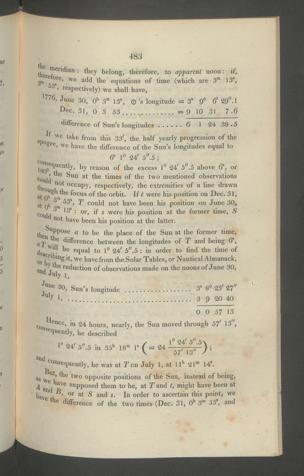 483
the meridian: they belong, therefore, to apparent noon: if,
therefore, we add the equations of time (which are 3ᵐ 13ˢ,
3ᵐ 53ˢ, respectively) we shall have,
1776, June 30, 0ʰ 3ᵐ 13ˢ, ☉'s longitude = 3ˢ 9⁰ 6′ 29″.1
Dec. 31, 0 3 53 .............. = 9 10 31 7.6
difference of Sun's longitudes ....... 6 1 24 38.5
If we take from this 33′, the half yearly progression of the
apogee, we have the difference of the Sun's longitudes equal to
6ˢ 1⁰ 24′ 5″.5;
consequently, by reason of the excess 1⁰ 24′ 5″.5 above 6ˢ, or
180⁰, the Sun at the times of the two mentioned observations
could not occupy, respectively, the extremities of a line drawn
through the focus of the orbit. If t were his position on Dec. 31,
at 0ʰ 3ᵐ 53ˢ, T could not have been his position on June 30,
at 0ʰ 3ᵐ 13ˢ: or, if s were his position at the former time, S
could not have been his position at the latter.
Suppose a to be the place of the Sun at the former time,
then the difference between the longitudes of T and being 6ˢ,
a T will be equal to 1⁰ 24′ 5″.5: in order to find the time of
describing it, we have from the Solar Tables, or Nautical Almanack,
or by the reduction of observations made on the noons of June 30,
and July 1,
June 30, Sun's longitude .................. 3ˢ 8⁰ 23′ 27″
July 1, ................................... 3 9 20 40
0 0 57 13
Hence, in 24 hours, nearly, the Sun moved through 57′ 13″,
consequently, he described
1⁰ 24′ 5″.5 in 35ʰ 18ᵐ 1ˢ (= 24 1⁰ 24′ 5″.5 / 57′ 13″);
and consequently, he was at T on July 1, at 11ʰ 21ᵐ 14ˢ.
But, the two opposite positions of the Sun, instead of being,
as we have supposed them to be, at T and t, might have been at
A and B, or at S and s. In order to ascertain this point, we
have the difference of the two times (Dec. 31, 0ʰ 3ᵐ 53ˢ, and